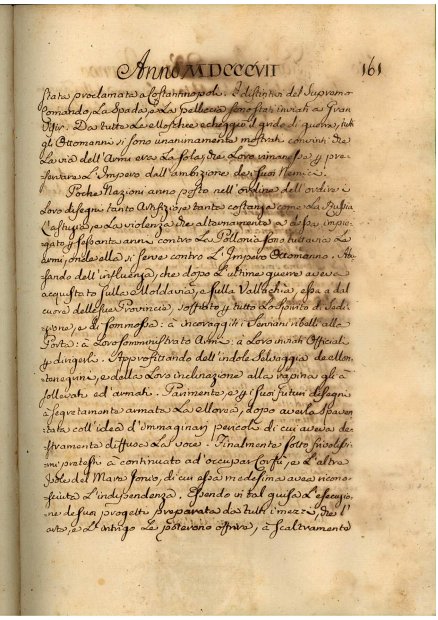 Anno MDCCCVII 161
stata proclamata a Costantinopoli. I distintivi del Supremo
Comando, La Spada, e La Pelliccia sono stati inviati al Gran
Visir. Da tutte Le Moschee echeggiò il grido di guerra, tutti
gli Ottomanni si sono unanimamente mostrati convinti che
La via dell'Armi era La sola, che Loro rimanesse p pre-
servare L'Impero dall'ambizione de suoi Nemici.
Poche Nazioni anno posto nell'ordine dell'ordire i
Loro disegni tanto Artifizio, e tanta costanza come La Russia
L'astuzia, e La violenza che alternamente à essa impie-
gato p sessanta anni contro La Pollonia sono tuttavia Le
armi, onde ella si serve contro L'Impero Ottomanno. Abu-
sando dell'influenza, che dopo L'ultime guerre aveva
acquistato sulla Moldavia, e sulla Vallachia, essa a dal
cuore delle sue Provincie, soffiato p tutto Lo spirito di Sedi-
zione, e di sommossa: à incoraggiti i Serviani ribelli alla
Porta: à Loro somministrato Armi: à Loro inviati Officiali
p dirigerli. Approfittando dell'indole Selvaggia de Mon-
tenegrini, e della Loro inclinazione alla rapina gli à
sollevati ed armati. Parimente, e p i suoi futuri disegni
à segretamente armata La Morea, dopo averla spaven-
tata coll'idea d'immaginarj pericoli di cui aveva de-
stramente diffuse La voce. Finalmente sotto frivolissi-
mi pretesti à continuato ad occupar Corfù, e L'altre
Isole del Mare Jonio, di cui essa medesima avea ricono-
sciuta L'independenza. Essendo in tal guisa L'esecuzio-
ne de suoi progetti preparata da tutti i mezzi, che l'
arte, e L'intrigo Le potevano offrire, à scaltramente